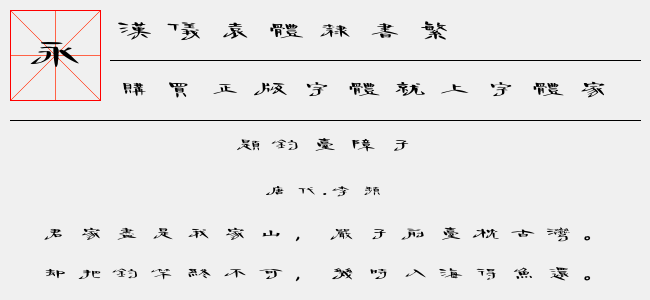 永
漢儀袁體隸書繁
購買正版字體就上字體家
題釣臺障子
唐代.李頻
君家盡是我家山，嚴子前臺枕古灣。
却把釣竿終不可，幾時入海得魚還。